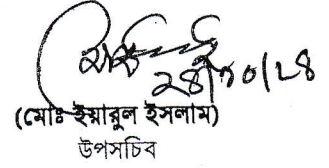 ২৪/১০/২৪
(মোঃ ইয়ারুল ইসলাম)
উপসচিব